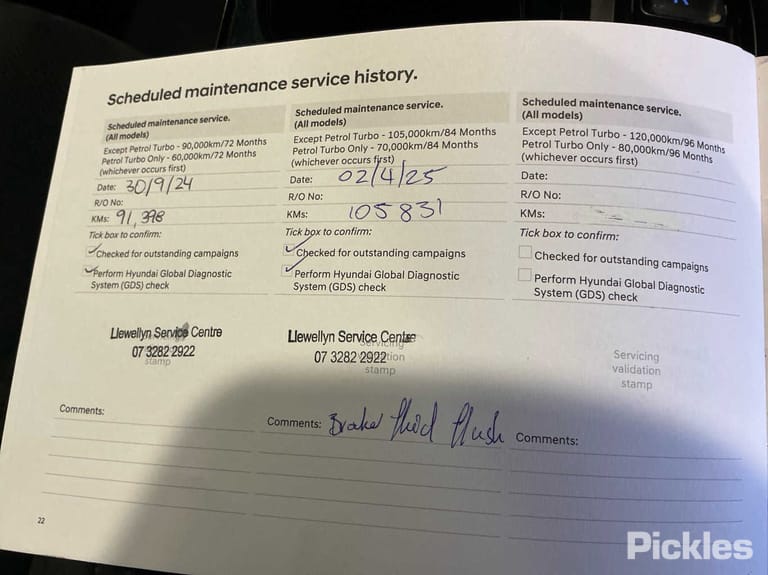 Scheduled maintenance service history.
Scheduled maintenance service.
(All models)
Except Petrol Turbo - 90,000km/72 Months
Petrol Turbo Only - 60,000km/72 Months
(whichever occurs first)
Date: 30/9/24
R/O No:
KMs: 91,398
Tick box to confirm:
Checked for outstanding campaigns
Perform Hyundai Global Diagnostic
System (GDS) check
Llewellyn Service Centre
07 3282 2922
stamp
Comments:
Scheduled maintenance service.
(All models)
Except Petrol Turbo - 105,000km/84 Months
Petrol Turbo Only - 70,000km/84 Months
(whichever occurs first)
Date: 02/4/25
R/O No:
KMs: 105831
Tick box to confirm:
Checked for outstanding campaigns
Perform Hyundai Global Diagnostic
System (GDS) check
Llewellyn Service Centre
Servicing
07 3282 2922
stamp
Comments: Brake fluid flush
Scheduled maintenance service.
(All models)
Except Petrol Turbo - 120,000km/96 Months
Petrol Turbo Only - 80,000km/96 Months
(whichever occurs first)
Date:
R/O No:
KMs:
Tick box to confirm:
Checked for outstanding campaigns
Perform Hyundai Global Diagnostic
System (GDS) check
Servicing
validation
stamp
Comments:
22
Pickles